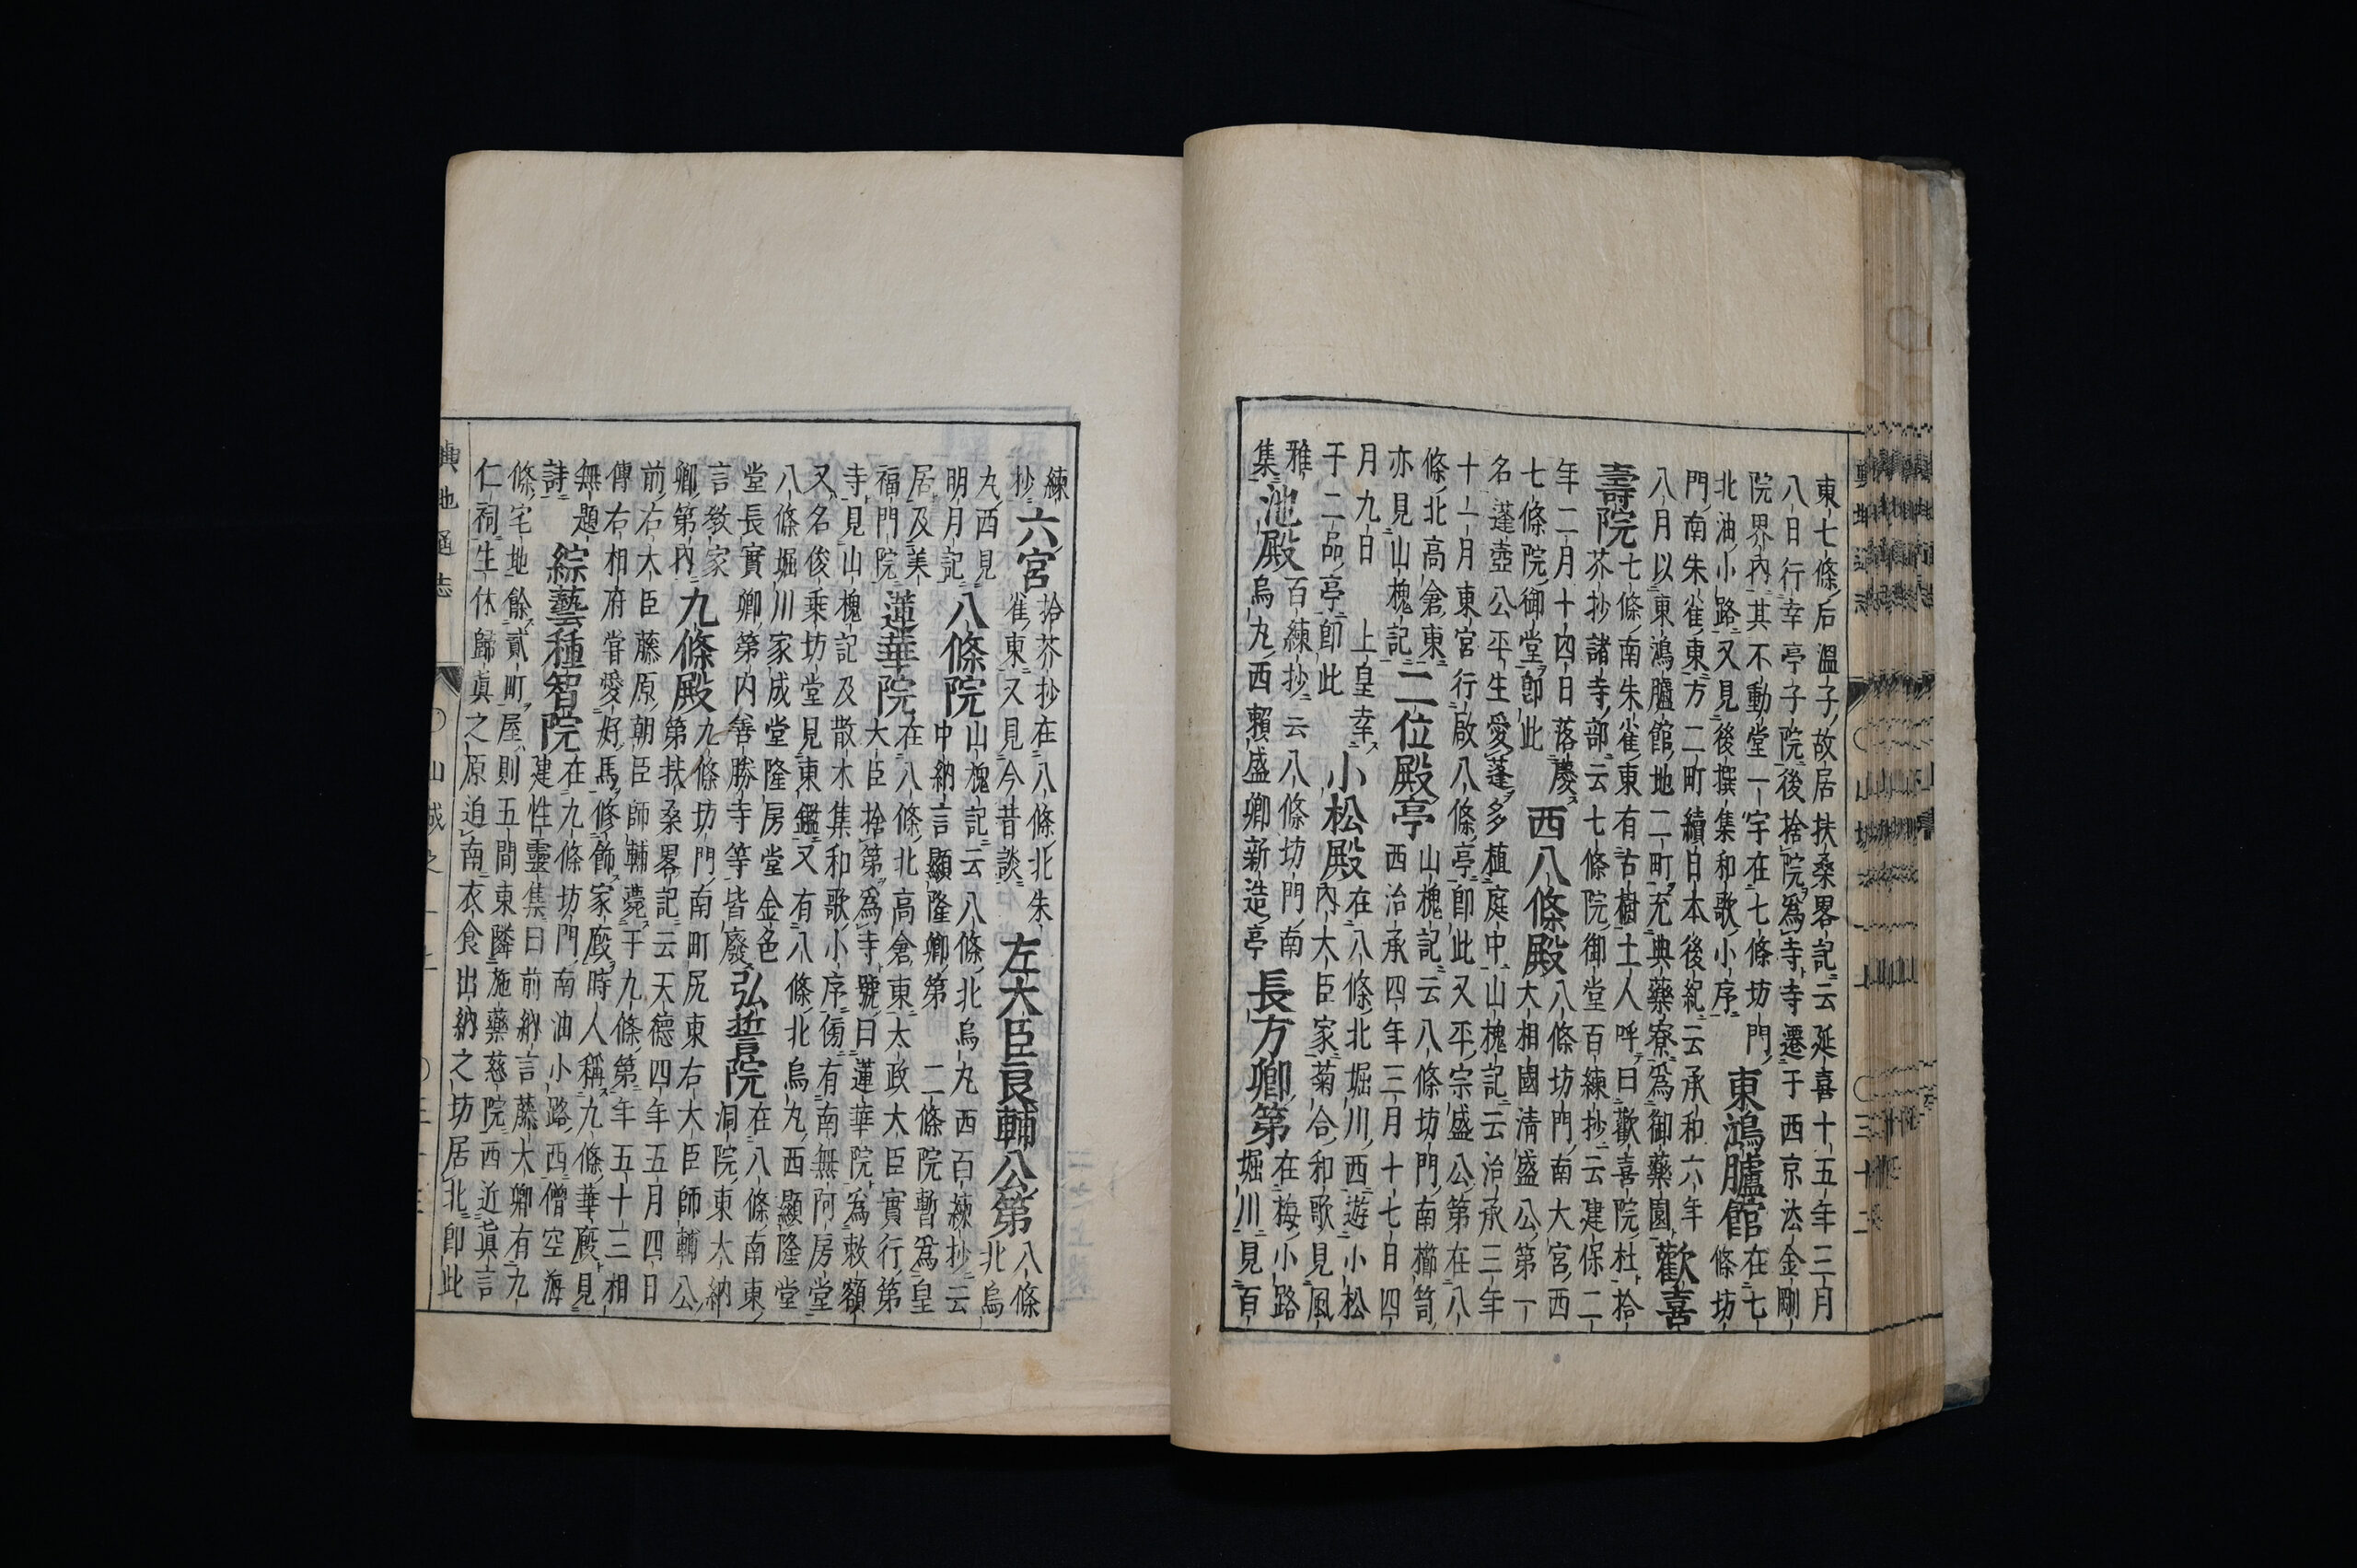 東七條后温子故居扶桑畧記云延喜十五年三月
八日行幸亭子院後捨院爲寺寺遷于西京法金剛
院界内其不動堂一宇在七條坊門
北油小路又見後撰集和歌小序
東鴻臚館
在七
條坊
門南朱雀東方二町續日本後紀云承和六年
八月以東鴻臚館地二町充典藥寮爲御藥園
歡喜
壽院
七條南朱雀東有古樹土人呼曰歡喜院杜拾
芥抄諸寺部云七條院御堂百練抄云建保二
年二月十四日落慶
七條院御堂即此
西八條殿
八條坊門南大宮西
大相國清盛公第一
名蓬壺公平生愛蓬多植庭中山槐記云治承三年
十一月東宮行啟八條亭即此又平宗盛公第在八
條北高倉東
亦見山槐記
二位殿亭
山槐記云八條坊門南櫛笥
西治承四年三月十七日四
月九日 上皇幸
于二品亭即此
小松殿
在八條北堀川西遊小松
内大臣家菊合和歌見風
雅
集
池殿
百練抄云八條坊門南
烏丸西賴盛卿新造亭
長方卿第
在梅小路
堀川見百
練
抄
六宮
拾芥抄在八條北朱
雀東又見今昔談
左大臣良輔公第
八條
北烏
丸西見
明月記
八條院
山槐記云八條北烏丸西百練抄云
中納言顯隆卿第 二條院暫爲皇
居及美
福門院
蓮華院
在八條北高倉東太政大臣實行第
大臣捨第爲寺號曰蓮華院爲敕額
寺見山槐記及散木集和歌小序傍有南無阿房堂
又名俊乗坊堂見東鑑又有八條北烏丸西顯隆堂
八條堀川家成堂隆房堂金色
堂長實卿第内善勝寺等皆廢
弘誓院
在八條南東
洞院東大納
言教家
卿第内
九條殿
九條坊門南町尻東右大臣師輔公
第扶桑畧記云天德四年五月四日
前右大臣藤原朝臣師輔薨于九條第年五十三相
傳右相府甞愛好馬修飾家廄時人稱九條華廄見
無題
詩
綜藝種智院
在九條坊門南油小路西僧空海
建性靈集曰前納言藤大卿有九
條宅地餘貳町屋則五間東隣施藥慈院西近眞言
仁祠生休歸眞之原迫南衣食出納之坊居北即此
輿地通志
山城之